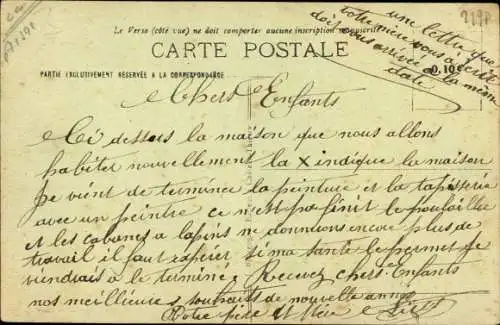 Le Verso (côté vue) ne doit comporter aucune inscription manuscrite
CARTE POSTALE
PARTIE EXCLUSIVEMENT RÉSERVÉE A LA CORRESPONDANCE
une lettre que
votre mère vous a écrit
doit vous arrivée a la même
date
0.10
Chers Enfants
Ci dessus la maison que nous allons
habiter nouvellement la X indique la maison
je vient de terminée la peinture et la tapisserie
avec un peintre ce n'est pas finit le poulailler
et les cabanes a lapins ne donnerons encore plus de
travail il faut espérer si ma santé le permet je
viendrais à le terminé. Recevez chers Enfants
nos meilleures souhaits de nouvelle année
Votre père et Mère